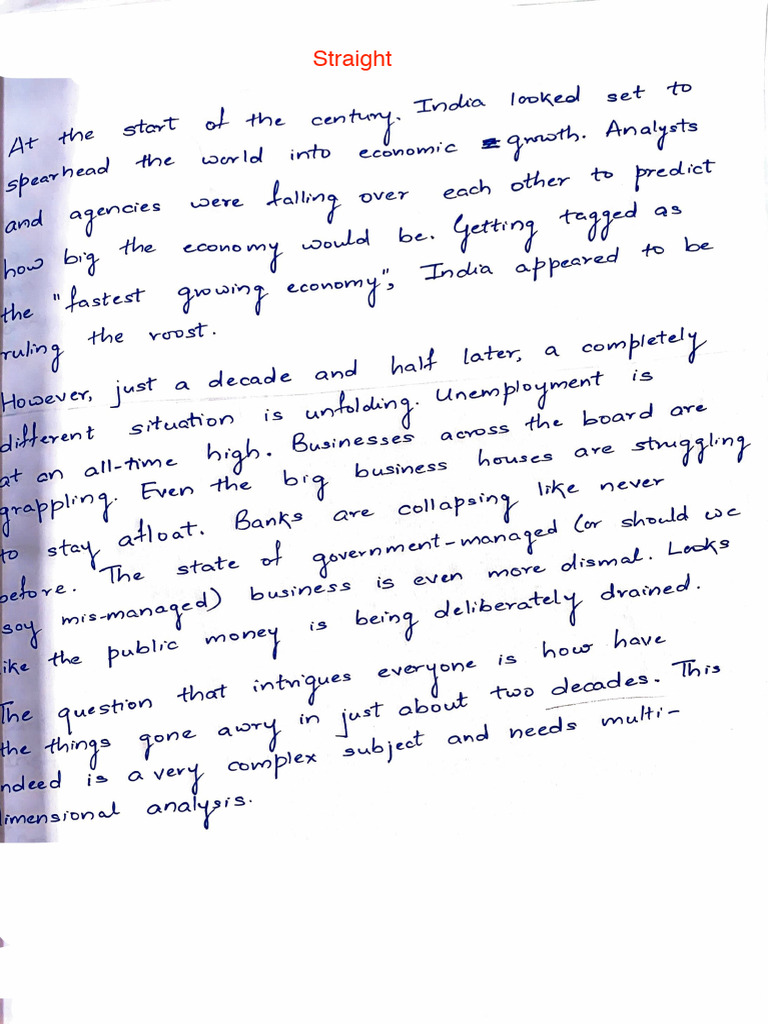 Straight
At the start of the century. India looked set to
spearhead the world into economic growth. Analysts
and agencies were falling over each other to predict
how big the economy would be. Getting tagged as
the "fastest growing economy", India appeared to be
ruling the roost.
However, just a decade and half later, a completely
different situation is unfolding. Unemployment is
at an all-time high. Businesses across the board are
grappling. Even the big business houses are struggling
to stay afloat. Banks are collapsing like never
before. The state of government-managed (or should we
say mis-managed) business is even more dismal. Looks
like the public money is being deliberately drained.
The question that intrigues everyone is how have
the things gone awry in just about two decades. This
indeed is a very complex subject and needs multi-
dimensional analysis.